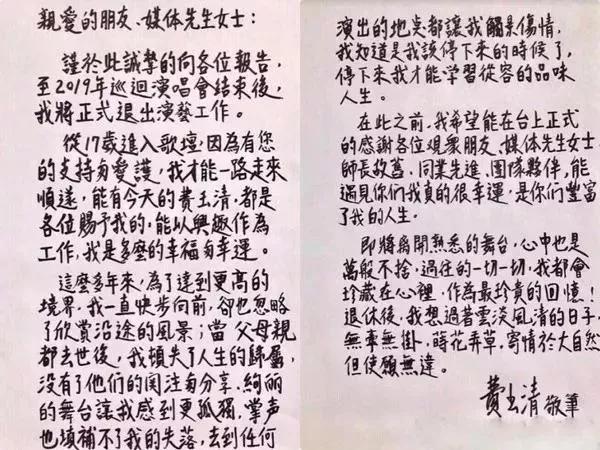 親愛的朋友、媒体先生女士：
謹於此誠摯的向各位報告，
至2019年巡迴演唱會結束後，
我將正式退出演藝工作。
從17歲進入歌壇，因為有您
的支持与愛護，我才能一路走來
順遂，能有今天的費玉清，都是
各位賜予我的，能以興趣作為
工作，我是多麼的幸福与幸運。
這麼多年來，為了達到更高的
境界，我一直快步向前，卻也忽略
了欣賞沿途的風景；當父母親
都去世後，我頓失了人生的歸屬，
沒有了他們的関注与分享，絢麗
的舞台讓我感到更孤獨，掌声
也填補不了我的失落，去到任何
演出的地点都讓我觸景傷情，
我知道是我該停下來的時候了，
停下來我才能學習從容的品味
人生。
在此之前，我希望能在台上正式
的感謝各位觀衆朋友、媒体先生女士、
師長故舊、同業先進、團隊夥伴，能
遇見你們我真的很幸運，是你們豐富
了我的人生。
即將离開熟悉的舞台，心中也是
萬般不捨，過往的一切一切，我都會
珍藏在心裡，作為最珍貴的回憶！
退休後，我想過著雲淡風清的日子，
無牽無掛，蒔花弄草，寄情於大自然
但使願無違。
費玉清 敬筆